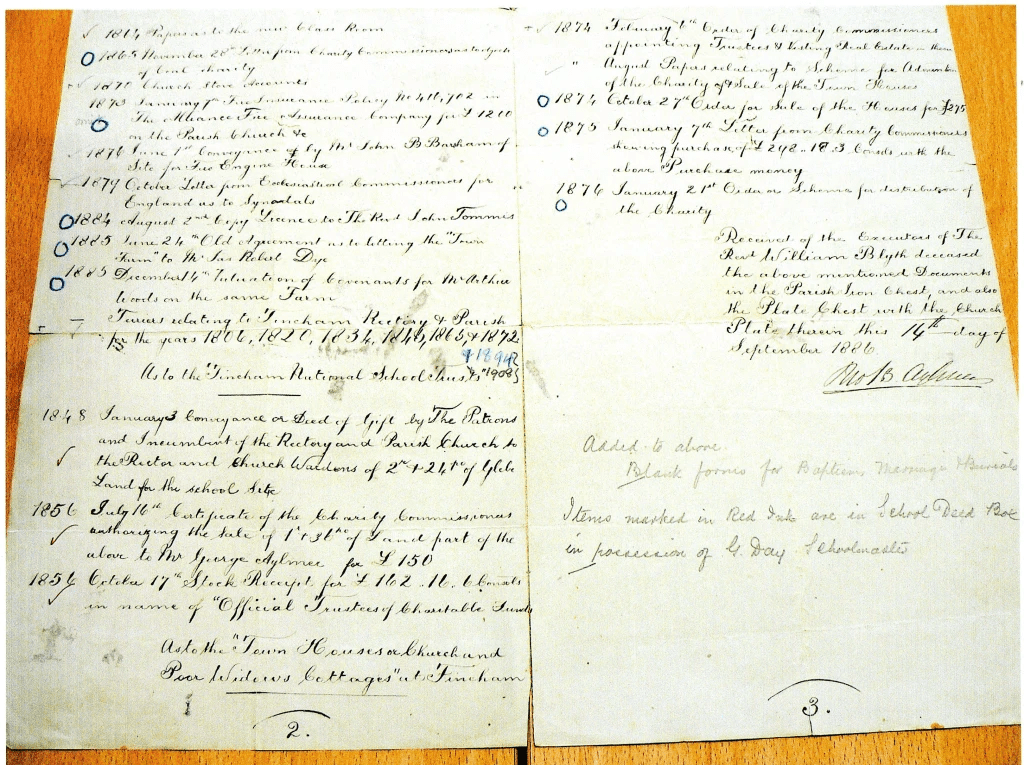 1864 Papers as to the new Class Room
1865 November 28th Letter from Charity Commissioners as to
of Coal charity
1870 Church Stove Accounts
1873 January 7th Fire Insurance Policy No 4116,702 in
The Alliance Fire Assurance Company for £1200
on the Parish Church &c
1876 June 1st Conveyance by Mr John B Barsham of
Site for Fire Engine House
1879 October Letter from Ecclesiastical Commissioners for
England as to Synodals
1884 August 2nd Copy Licence to The Revd John Tommis
1885 June 24th Old Agreement as to letting the "Town
Farm" to Mr Jas Robert Dye
1885 December 14th Valuation of Covenants for Mr Arthur
Woods on the same Farm
Terriers relating to Fincham Rectory & Parish
for the years 1806, 1820, 1834, 1845, 1863, & 1872
As to the "Fincham National School Trusts"
1848 January 3 Conveyance or Deed of Gift by The Patrons
and Incumbent of the Rectory and Parish Church to
the Rector and Church Wardens of 2r & 24ps of Glebe
Land for the school Site
1856 July 16th Certificate of the Charity Commissioners
authorizing the Sale of of Land part of the
above to Mr George Aylmer for £150
1856 October 17th Stock Receipt for £162 .. 16 . 6 Consols
in name of "Official Trustees of Charitable Funds
As to the "Town Houses or Church and
Poor Widows Cottages" at Fincham
2.
1874 February 6th Order of Charity Commissioners
appointing Trustees & Vesting Real Estate in them
" August Papers relating to Scheme for Adminton
of the Charity & Sale of the Town Houses
1874 October 27th Order for Sale of the Houses for £275
1875 January 7th Letter from Charity Commissioners
shewing purchase of £298 .. 18.3 Consols with the
above Purchase money
1876 January 21st Order or Scheme for distribution of
the Charity
Received of the Executors of The
Revd William Blyth deceased
the above mentioned Documents
in the Parish Iron Chest, and also
the Plate Chest with the Church
Plate therein this 14th day of
September 1886.
B. Aylmer
Added to above
Blank forms for Baptism Marriage & Burials
Items marked in Red Ink are in School Deed Box
in possession of G. Day Schoolmaster
3.